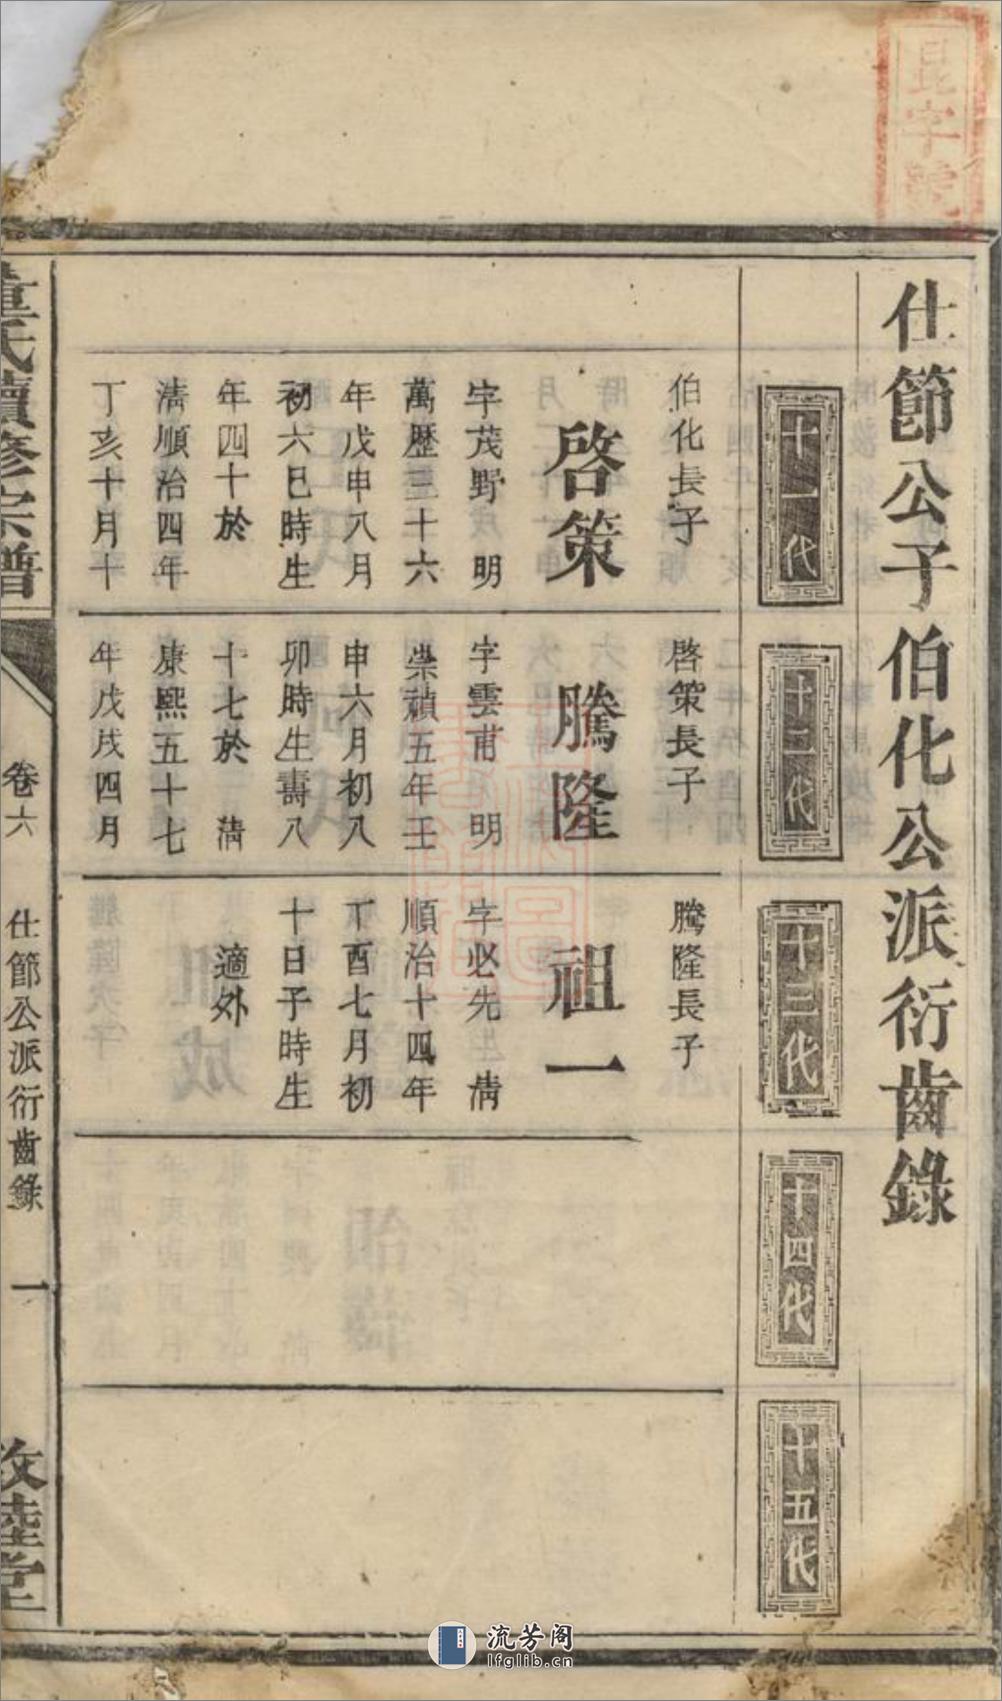 仕節公子伯化公派衍齒錄
十一代
十二代
十三代
十四代
十五代
伯化長子
啓策
字茂野　明
萬歷三十六
年戊申八月
初六巳時生
年四十於
清順治四年
丁亥十月十
啓策長子
騰隆
字雲甫　明
崇禎五年壬
申六月初八
卯時生壽八
十七於　清
康熙五十七
年戊戌四月
騰隆長子
祖一
字必先　清
順治十四年
丁酉七月初
十日子時生
適外
氏續修宗譜
卷六
仕節公派衍齒錄
一
敦睦堂
昆字號
流芳阁
lfglib.cn